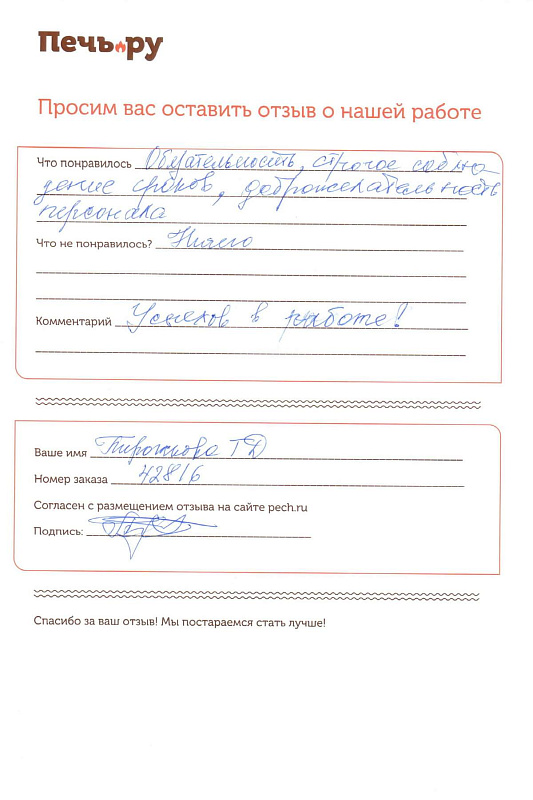 Печь.ру
Просим вас оставить отзыв о нашей работе
Что понравилось Обязательность, строгое соблю
дение сроков, доброжелательность
персонала
Что не понравилось? Ничего
Комментарий Успехов в работе!
Ваше имя Пирожкова ТД
Номер заказа 42816
Согласен с размещением отзыва на сайте pech.ru
Подпись:
Спасибо за ваш отзыв! Мы постараемся стать лучше!